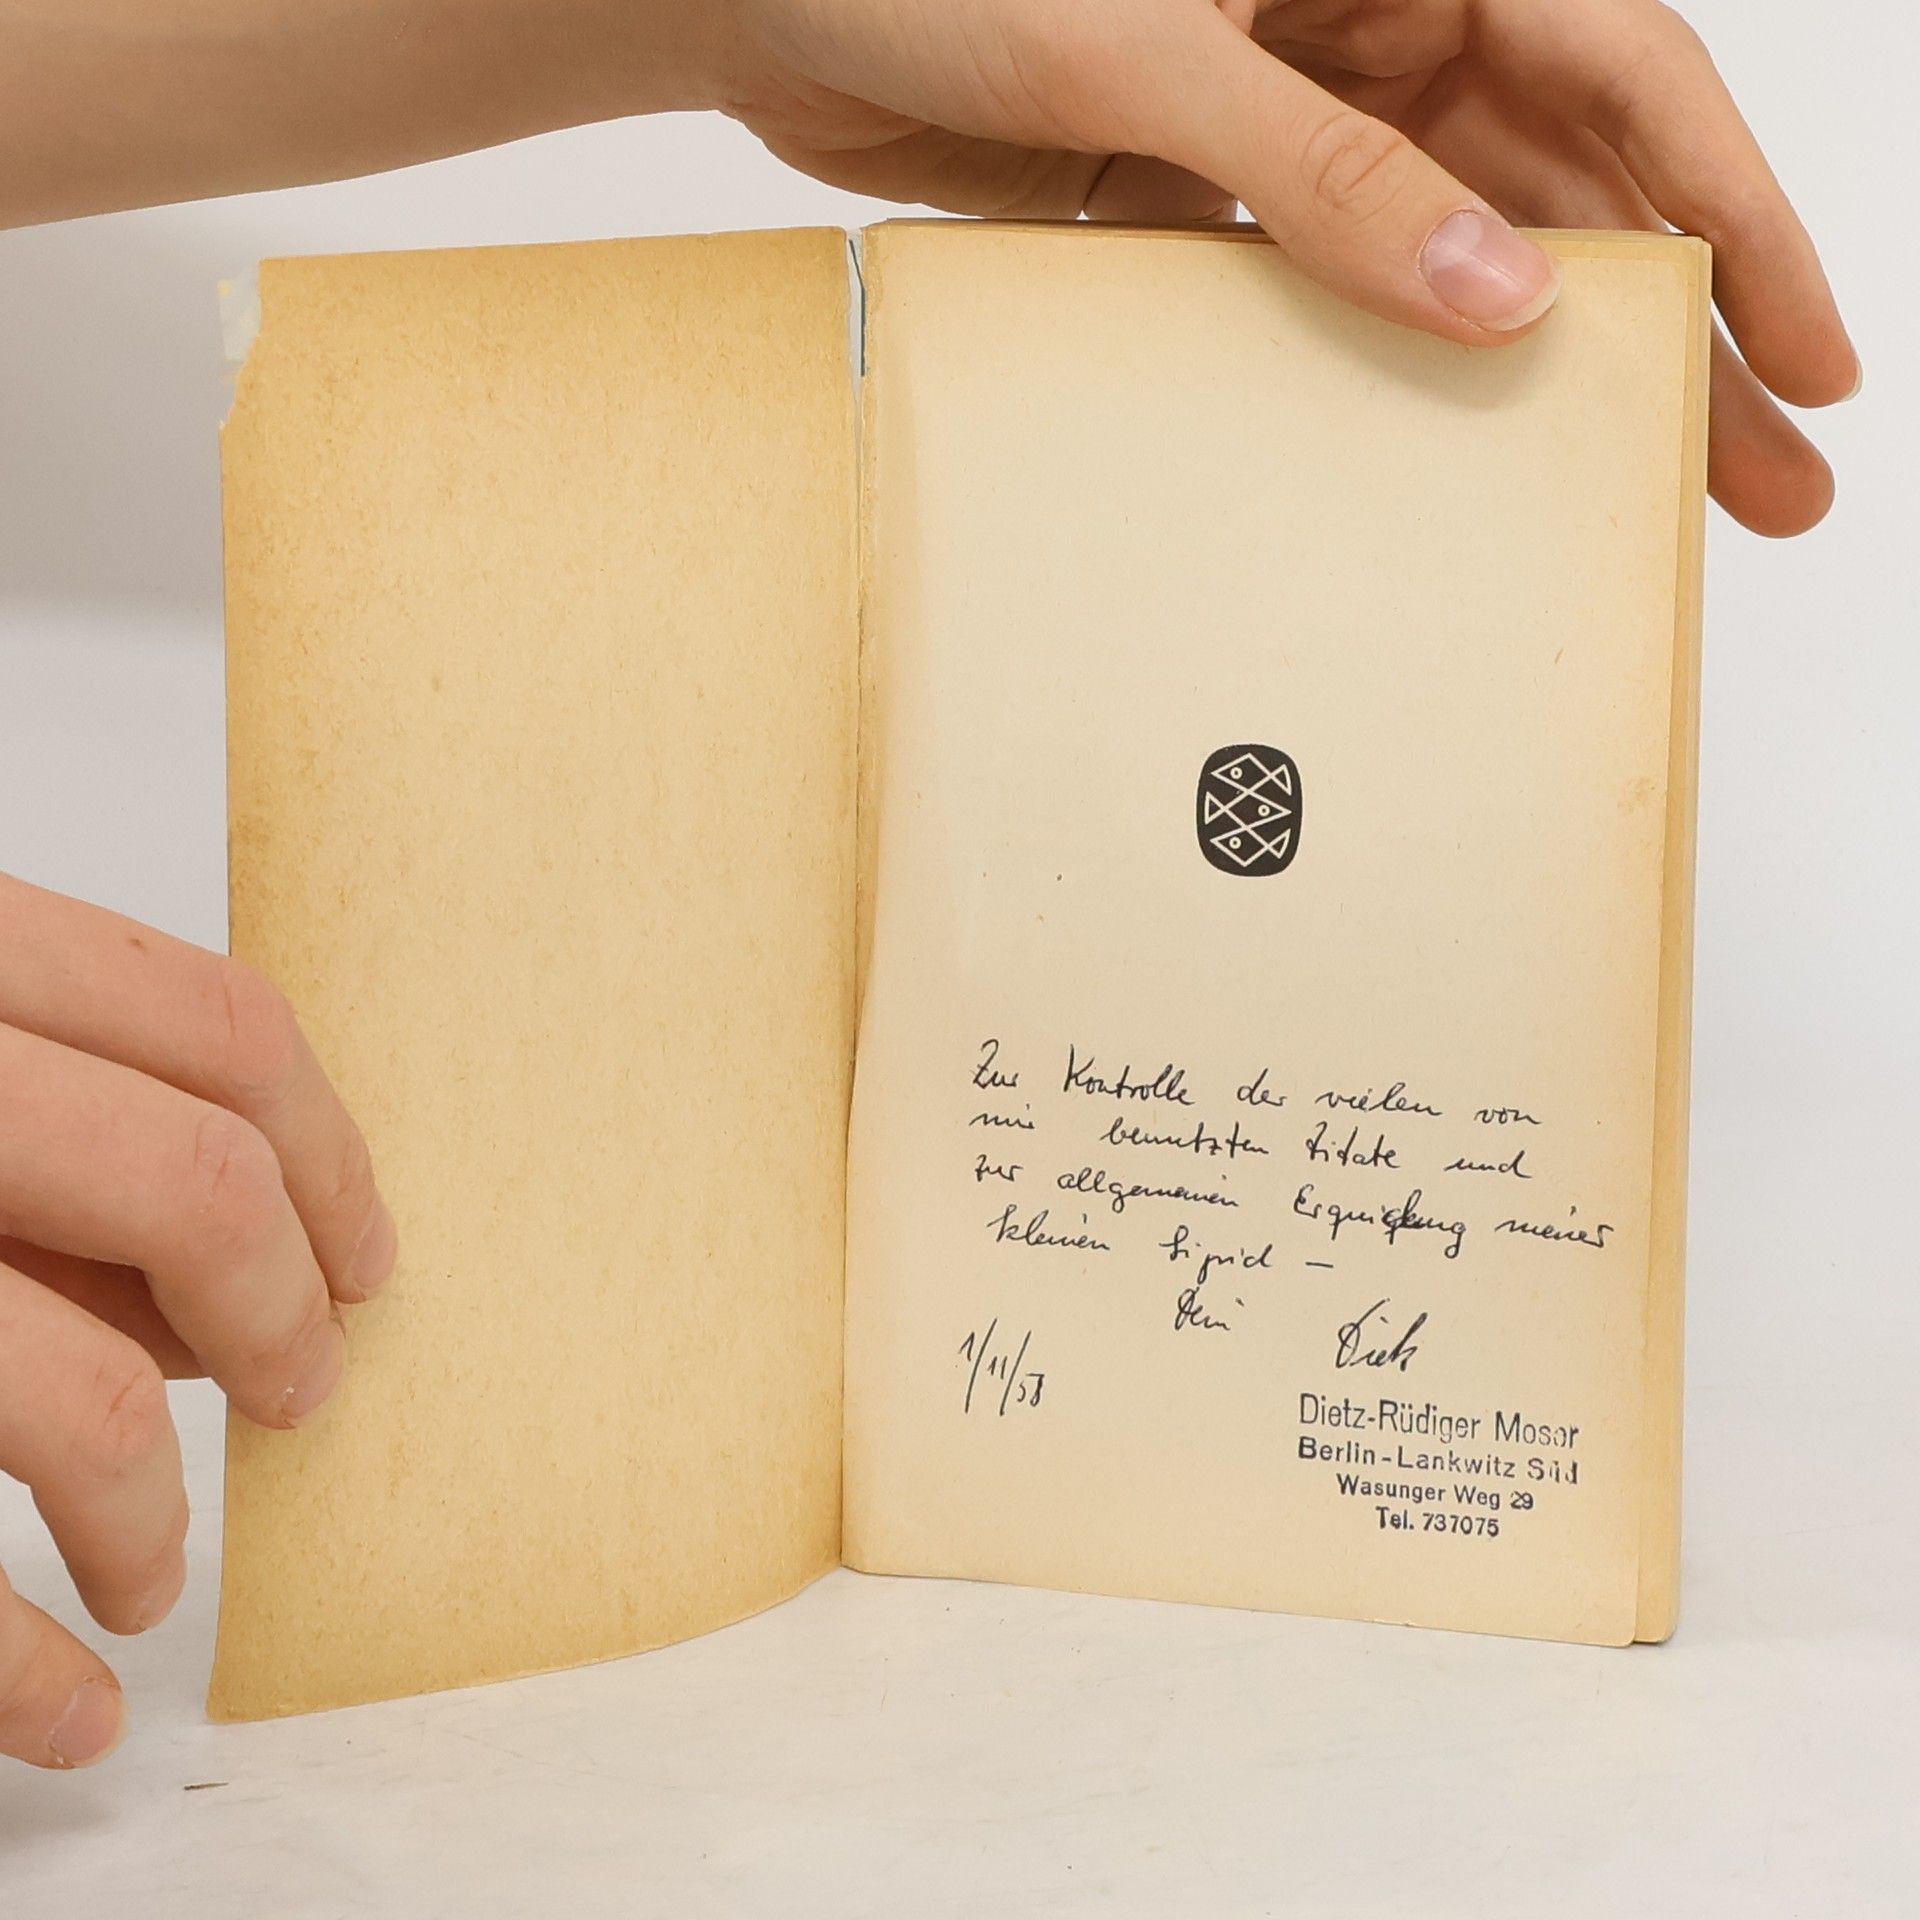 Zur Kontrolle der vielen von
mir benutzten Zitate und
zur allgemeinen Erquickung meiner
kleinen Sigrid —
Dein
1/11/58
Dietz-Rüdiger Moser
Berlin-Lankwitz Süd
Wasunger Weg 29
Tel. 737075